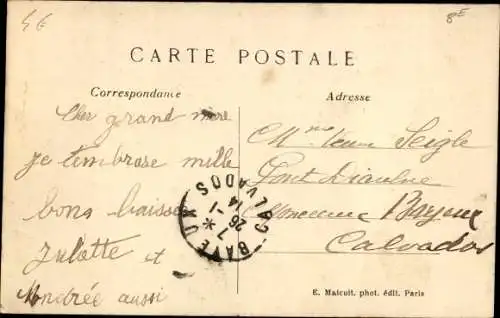 4€
8E
CARTE POSTALE
Correspondance
Adresse
Cher grand mere
je tembrase mille
bons baisse
Juliette et
aussi
Mme Veuve Seigle
Pont Diaulne
Monceaux Bayeux
Calvados
BAYEUX
CALVADOS
E. Malcuit. phot. édit. Paris